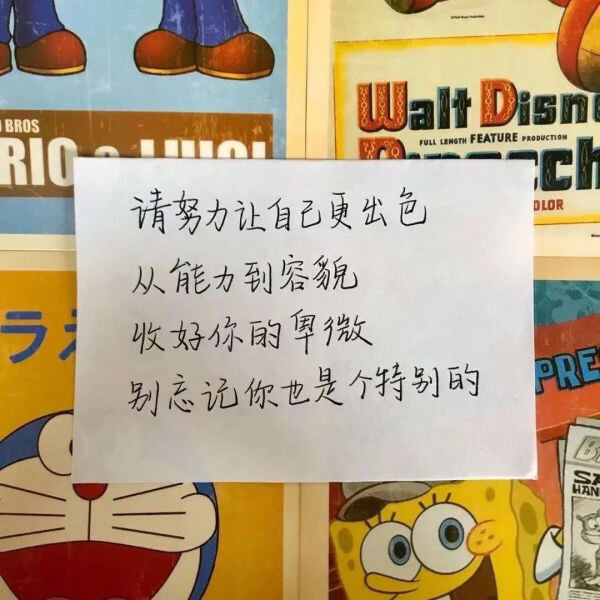 BROS
RIO & LUIGI
Walt Disn
FULL LENGTH FEATURE PRODUCTION
OLOR
请努力让自己更出色
从能力到容貌
收好你的卑微
别忘记你也是个特别的
ラ
PRE
SA
HAN